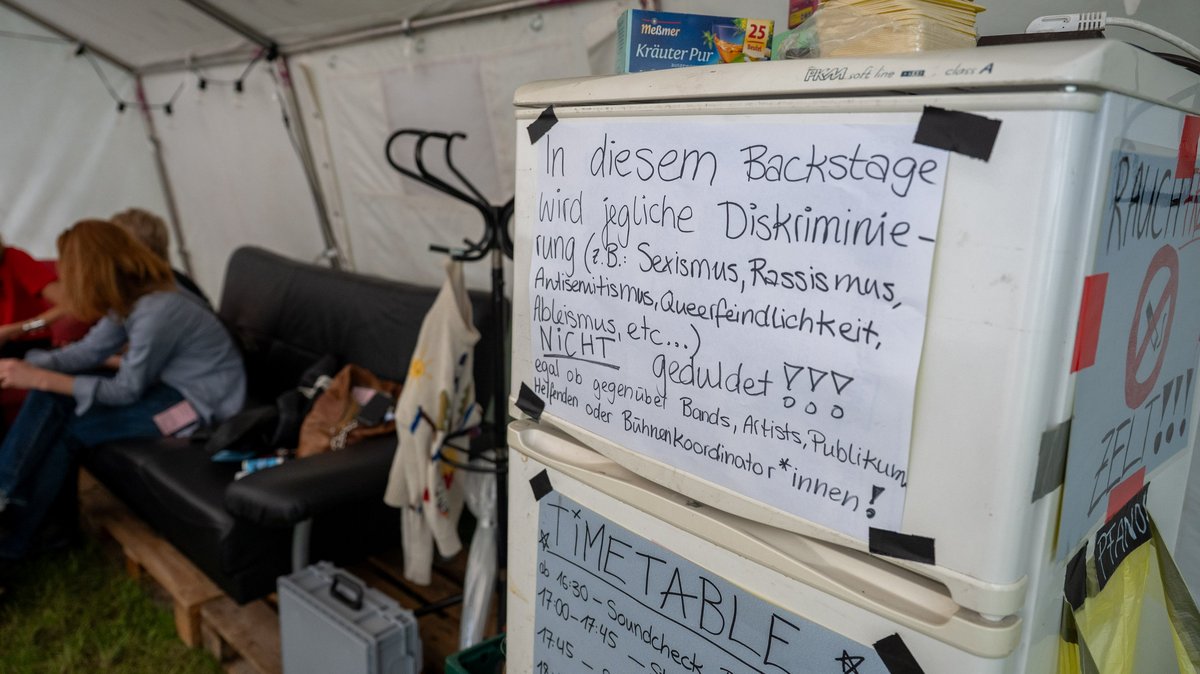 Meßmer
Kräuter Pur
25
Beutel
PKM soft line class A
In diesem Backstage
wird jegliche Diskriminie-
rung (z.B.: Sexismus, Rassismus,
Antisemitismus, Queerfeindlichkeit,
Ableismus, etc...)
NiCHT geduldet !!!
egal ob gegenüber Bands, Artists, Publikum,
Helfenden oder Bühnenkoordinator*innen!
TiMETABLE
ab 16:30 – Soundcheck
17:00-17:45
17:45
RAUCH
ZELT!!!
PFAND